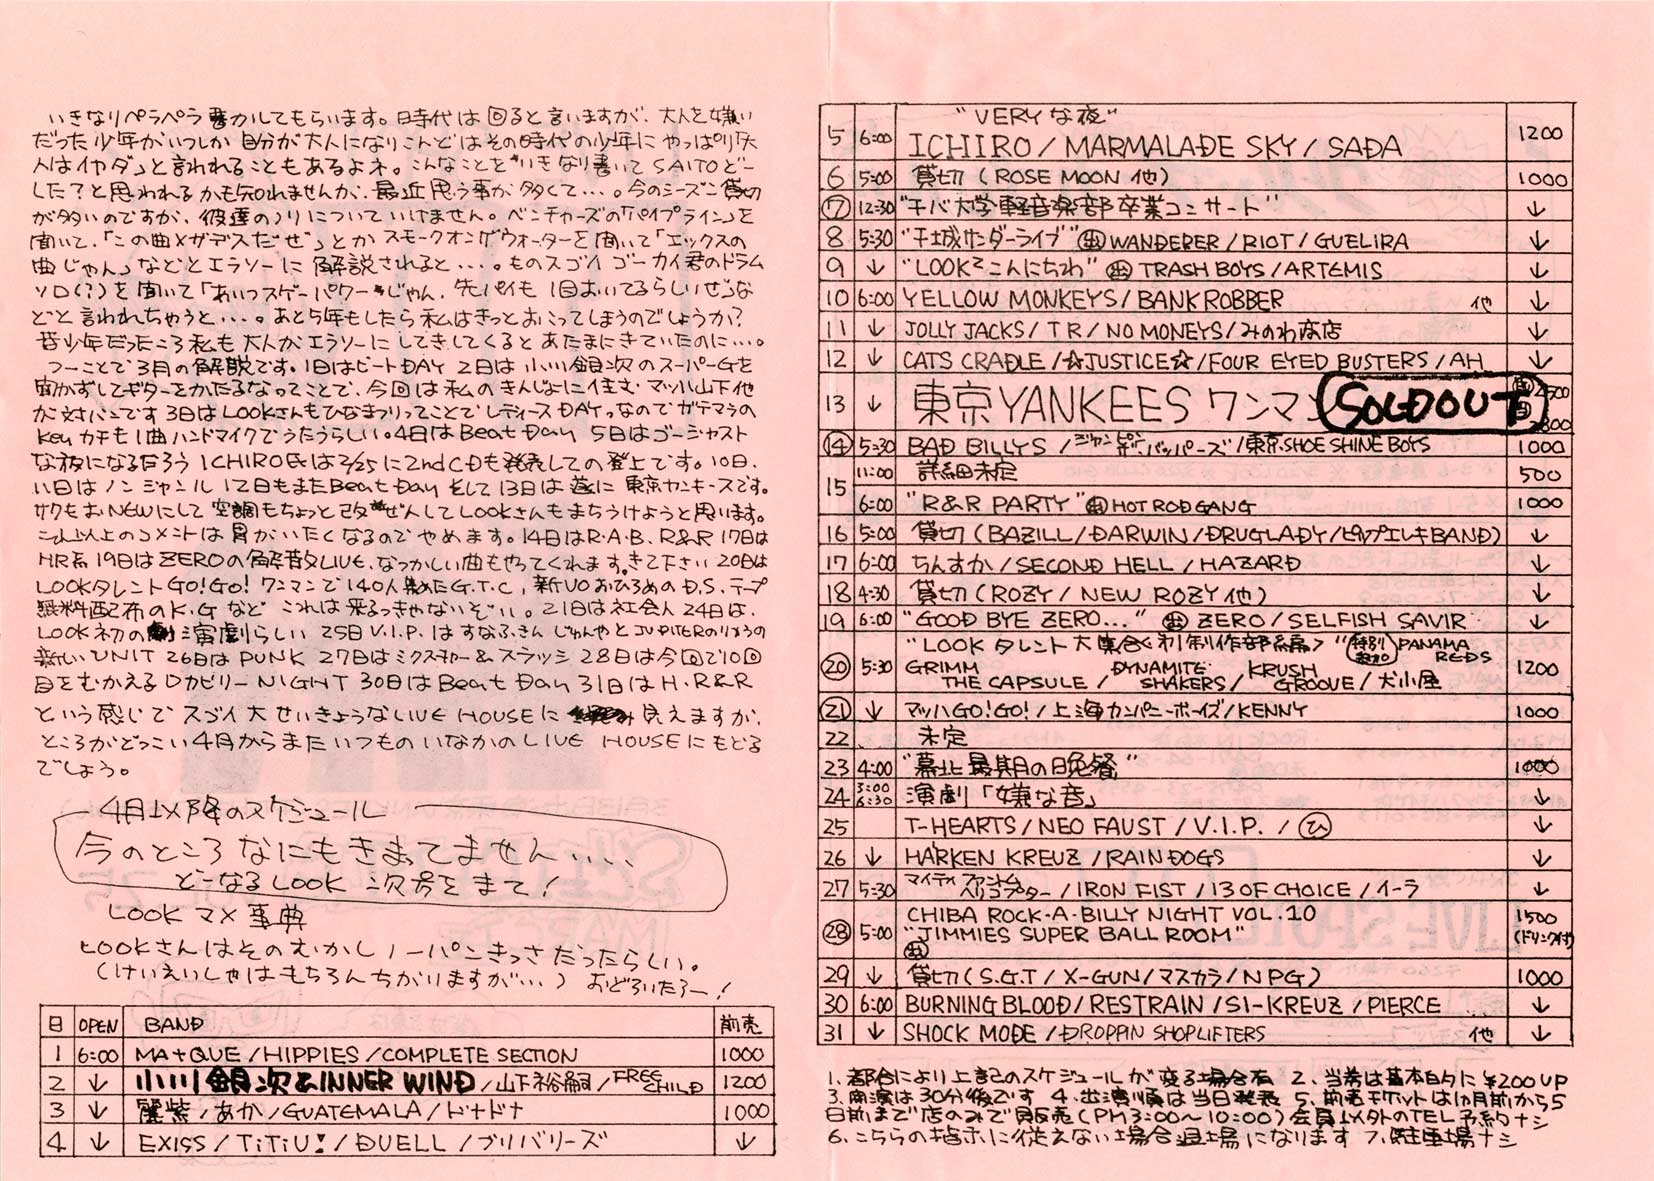 いきなりペラペラ書かしてもらいます。日時代は回ると言いますが、大人を嫌い
だった少年がいつしか自分が大人になりこんどはその時代の少年にやっぱり「大
人はイヤダ」と言われることもあるよネ。こんなことを"いきなり書いてSAITOどー
した?と思われるかも知れませんが、最近思う事が多くて…。今のシーズン貸切
が多いのですが、彼達のノリについていけません。ベンチャーズの「パイプライン」を
聞いて、「この曲メガデスだぜ」とかスモークオンザウォーターを聞いて「エックスの
曲じゃん」などとエラソーに解説されると…。ものスゴイゴーカイ君のドラム
ソロ(?)を聞いて「あいつスゲーパワーじゃん、先パイも1目おいてるらしいぜ」な
どと言われちゃうと…。あと5年もしたら私はきっとおこってしまうのでしょうか?
昔少年だったころ私も大人がエラソーにしてきしてくるとあたまにきていたのに…。
つーことで3月の解説です。1日はビートDAY 2日は小川銀次のスーパーGを
聞かずしてギターをかたるなってことで、今回は私のきんじょに住む マッハ山下他
が対バンです 3日はLOOKさんもひなまつりってことでレディースDAY。なのでガテマラの
Keyカチも1曲ハンドマイクでうたうらしい。4日はBeat Day 5日はゴージャスト
な夜になるだろう ICHIRO氏は2/25に2nd CDも発表しての登上です。10日、
11日はノンジャンル 12日もまたBeat Day そして13日は遂に東京ヤンキースです。
サクもおNEWにして空調もちょっと改ぜんしてLOOKさんもまちうけようと思います。
これ以上のコメントは胃がいたくなるのでやめます。14日はR・A・B、R&R 17日は
HR系 19日はZEROの解散LIVE、なつかしい曲もやってくれます。きて下さい 20日は
LOOKタレントGO!GO! ワンマンで140人集めたG.T.C、新VOおひろめのD.S、テープ
無料配布のK.Gなど これは来るっきゃないぞい。21日は社会人 24日は、
LOOK初の演劇らしい 25日V.I.P.はすなふきん じゅんやとJUPITERのりょうの
新しいUNIT 26日はPUNK 27日はミクスチャー&スラッシ 28日は今回で10回
目をむかえるロカビリーNIGHT 30日はBeat Day 31日はH・R&R
という感じで スゴイ大せいきょうなLIVE HOUSEに見えますが、
ところがどっこい4月からまたいつものいなかのLIVE HOUSEにもどる
でしょう。
4月以降のスケジュール
今のところなにもきまってません….
どーなるLOOK 次号をまて!
LOOKマメ事典
LOOKさんはそのむかしノーパンきっさだったらしい。
(けいえいしゃはもちろんちがいますが…) おどろいたろー!
日 OPEN BAND 前売
1 6:00 MA+QUE/HIPPIES/COMPLETE SECTION 1000
2 ↓ 小川銀次&INNER WIND/山下裕嗣/FREE CHILD 1200
3 ↓ 麗紫/あか/GUATEMALA/ドナドナ 1000
4 ↓ EXISS/TiTiU!/DUELL/ブリバリーズ ↓
"VERYな夜"
5 6:00 ICHIRO/MARMALADE SKY/SADA 1200
6 5:00 貸切(ROSE MOON 他) 1000
⑦ 12:30 "千バ大学軽音楽部卒業コンサート" ↓
8 5:30 "千城サンダーライブ" 出 WANDERER/RIOT/GUELIRA ↓
9 ↓ "LOOKでこんにちわ" 出 TRASH BOYS/ARTEMIS ↓
10 6:00 YELLOW MONKEYS/BANK ROBBER 他 ↓
11 ↓ JOLLY JACKS/TR/NO MONEYS/みのわ商店 ↓
12 ↓ CATS CRADLE/☆JUSTICE☆/FOUR EYED BUSTERS/AH ↓
13 ↓ 東京YANKEES ワンマン SOLD OUT 前 2500 当 2800
⑭ 5:30 BAD BILLYS/ジャンピンホッパーズ/東京SHOE SHINE BOYS 1000
15 11:00 詳細未定 500
6:00 "R&R PARTY" 出 HOT ROD GANG 1000
16 5:00 貸切(BAZILL/DARWIN/DRUGLADY/ピップエレキBAND) ↓
17 6:00 ちんすか/SECOND HELL/HAZARD ↓
18 4:30 貸切(ROZY/NEW ROZY 他) ↓
19 6:00 "GOOD BYE ZERO…" 出 ZERO/SELFISH SAVIR ↓
"LOOKタレント大集合<制作部編>" 特別参加 PANAMA REDS
⑳ 5:30 GRIMM THE CAPSULE/DYNAMITE SHAKERS/KRUSH GROOVE/犬小屋 1200
㉑ ↓ マッハGO!GO!/上海カンパニーボーイズ/KENNY 1000
22 未定
23 4:00 "幕北最期の晩餐" 1000
24 3:00 6:30 演劇「嫌な音」 ↓
25 T-HEARTS/NEO FAUST/V.I.P./ひ ↓
26 ↓ HARKEN KREUZ/RAIN DOGS ↓
27 5:30 マイティファントムヘリコプター/IRON FIST/13 OF CHOICE/イーラ ↓
CHIBA ROCK・A・BILLY NIGHT VOL.10 1500
㉘ 5:00 "JIMMIES SUPER BALL ROOM" (ドリンク付)
出
29 ↓ 貸切(S.G.T/X-GUN/マスカラ/NPG) 1000
30 6:00 BURNING BLOOD/RESTRAIN/SI-KREUZ/PIERCE ↓
31 ↓ SHOCK MODE/DROPPIN SHOPLIFTERS 他 ↓
1. 都合により上記のスケジュールが変る場合有 2. 当券は基本的に¥200UP
3. 開演は30分後です 4. 出演順は当日発表 5. 前売チケットは1か月前から5
日前まで店のみで販売(PM3:00〜10:00)会員以外のTEL予約ナシ
6. こちらの指示に従えない場合退場になります 7. 駐車場ナシ